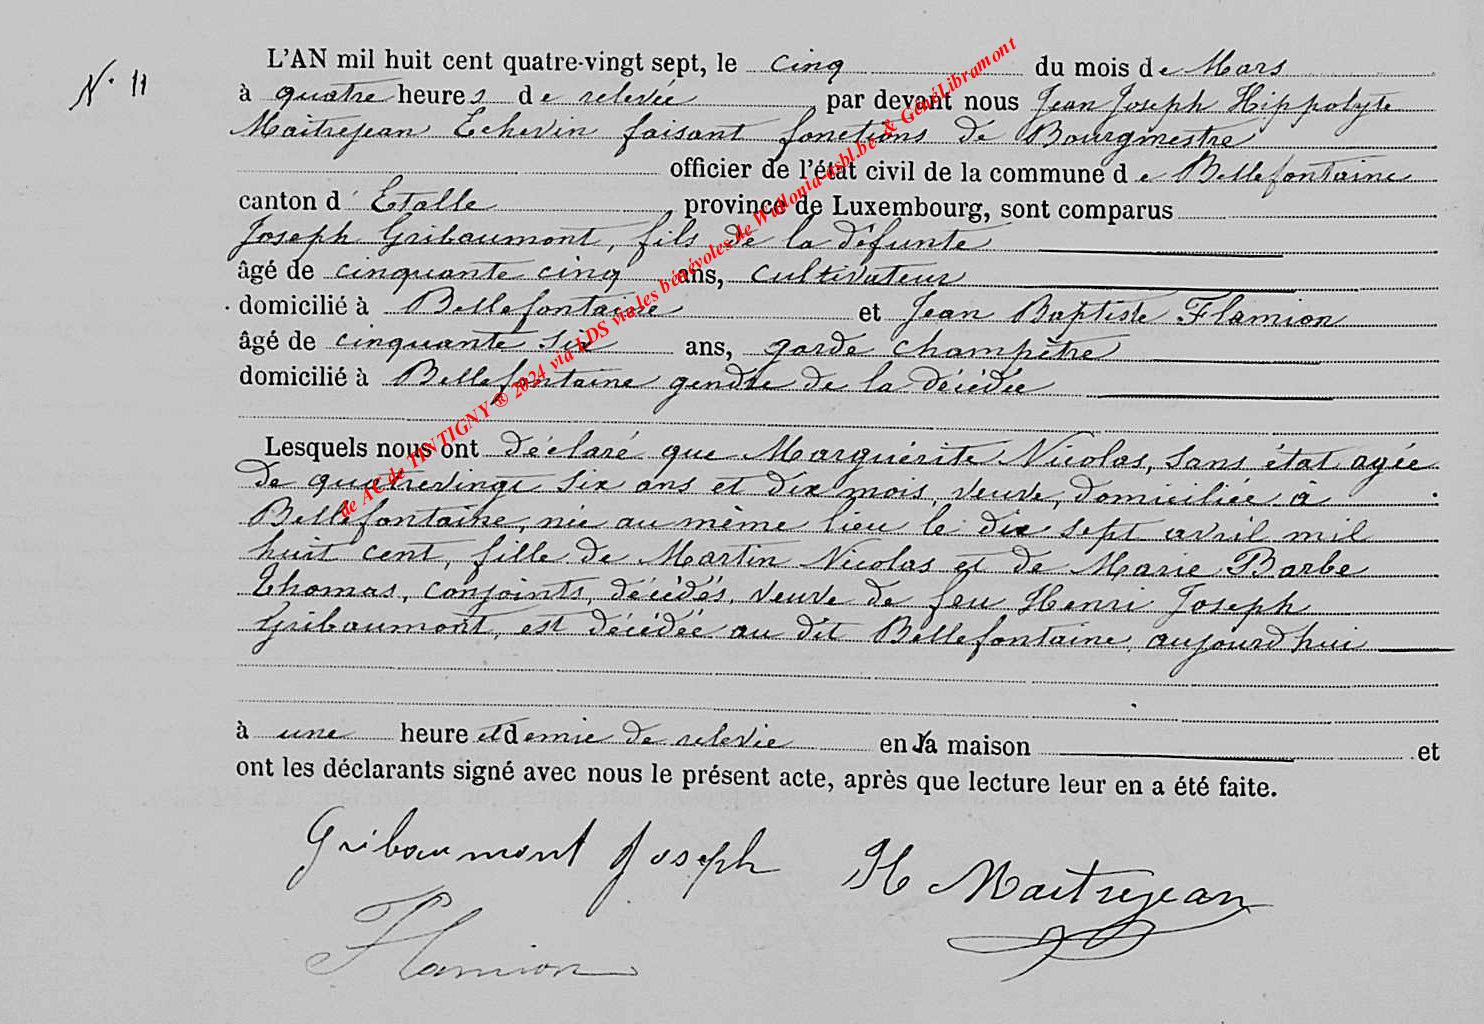 N° 11
L'AN mil huit cent quatre-vingt sept, le cinq du mois de Mars
à quatre heures de relevée par devant nous Jean Joseph Hippolyte
Maitrejean Echevin faisant fonctions de Bourgmestre
officier de l'état civil de la commune de Bellefontaine
canton d'Etalle province de Luxembourg, sont comparus
Joseph Gribaumont, fils de la défunte
âgé de cinquante cinq ans, cultivateur
domicilié à Bellefontaine et Jean Baptiste Flamion
âgé de cinquante six ans, garde champêtre
domicilié à Bellefontaine gendre de la décédée
Lesquels nous ont déclaré que Marguérite Nicolas, sans état agée
de quatrevingt six ans et dix mois, veuve, domiciliée à
Bellefontaine, née au même lieu le dix sept avril mil
huit cent, fille de Martin Nicolas et de Marie Barbe
Thomas, conjoints, décédés, veuve de feu Henri Joseph
Gribaumont, est décédée au dit Bellefontaine, aujourd'hui
à une heure et demie de relevée en sa maison et
ont les déclarants signé avec nous le présent acte, après que lecture leur en a été faite.
Gribaumont Joseph H Maitrejean
Flamion
de AC de TINTIGNY ® 2024 via LDS via les bénévoles de Wallonia-asbl.be & GénéLibramont